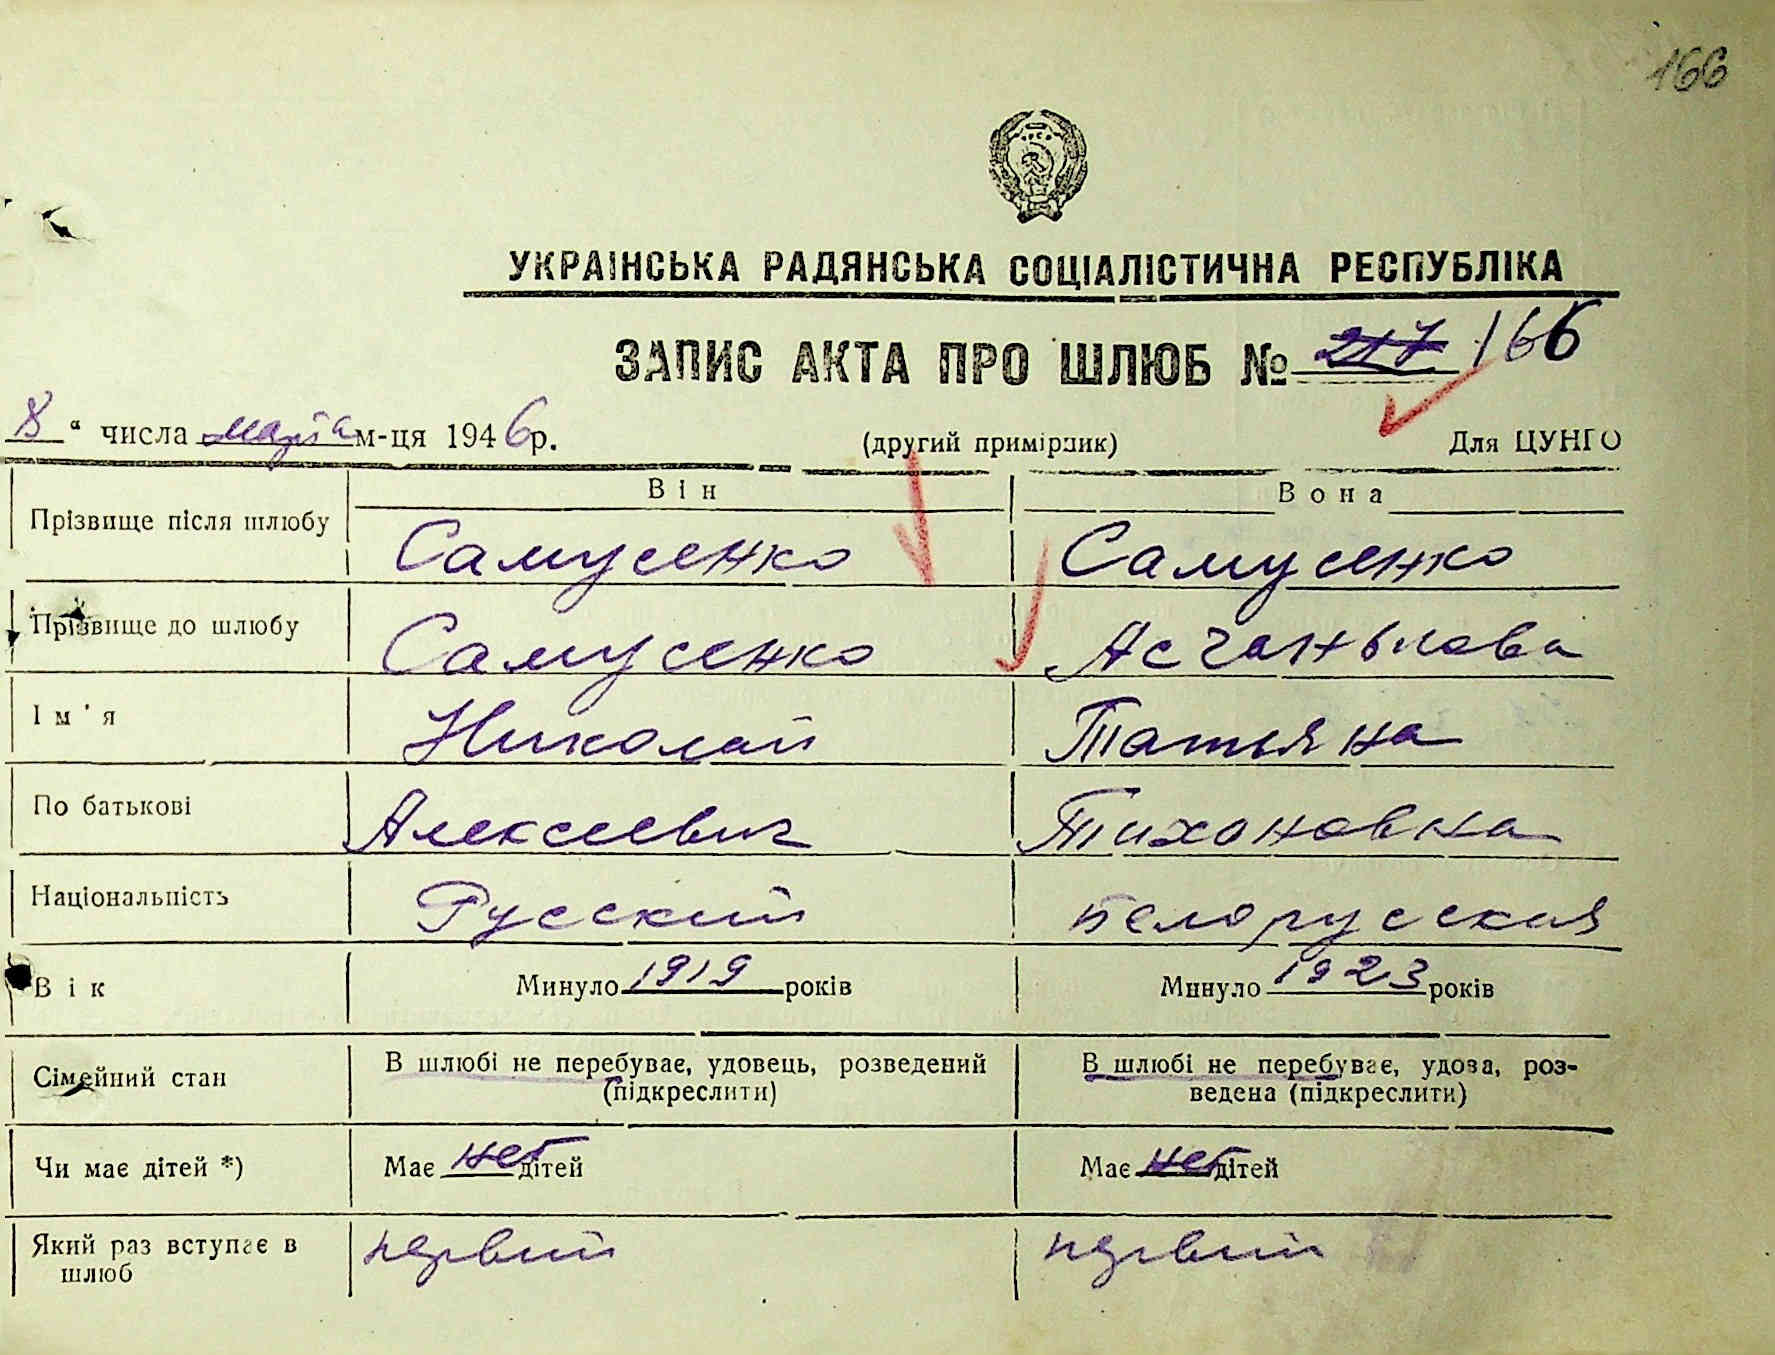 166
УКРАЇНСЬКА РАДЯНСЬКА СОЦІАЛІСТИЧНА РЕСПУБЛІКА
ЗАПИС АКТА ПРО ШЛЮБ № 217 166
8 “ числа марта м-ця 1946 р. (другий примірник) Для ЦУНГО
Він Вона
Прізвище після шлюбу Самусенко Самусенко
Прізвище до шлюбу Самусенко
Ім'я Николай Татьяна
По батькові Алексеевич Тихоновна
Національність Русский белорусская
Вік Минуло 1919 років Минуло 1923 років
Сімейний стан В шлюбі не перебуває, удовець, розведений В шлюбі не перебуває, удова, роз-
(підкреслити) ведена (підкреслити)
Чи має дітей *) Має нет дітей Має нет дітей
Який раз вступає в первий первий
шлюб